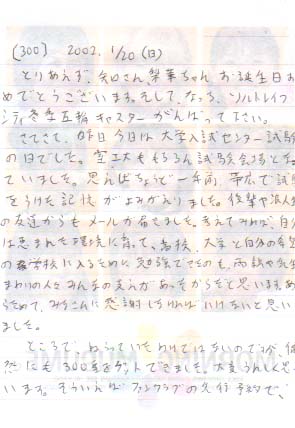 [300] 2002. 1/20 (日)
とりあえず、矢口さん、梨華ちゃん お誕生日お
めでとうございます。そして、なっち、ソルトレイク
シティ冬季五輪 キャスター がんばって下さい。
さてさて、昨日 今日は 大学入試センター試験
の日でした。室工大ももちろん試験会場となっ
ていました。思えばちょうど一年前、帯広で試験
をうけた記憶が よみがえりました。後輩や浪人生
の友達からも メールが届きました。考えてみれば、自分
は恵まれた環境に育って、高校、大学と自分の希望
の学校に入るために勉強できたのも、両親や先生
まわりの人々 みんなの支えがあったからだと思います。あ
らためて、みなさんに感謝しなければ いけないと思い
ました。
ところで、ねらっていたわけではないのですが、偶
然にも300番をゲットできました。大変うれしく思
います。そういえばファンクラブの先行予約で、
MORNING MUSUME